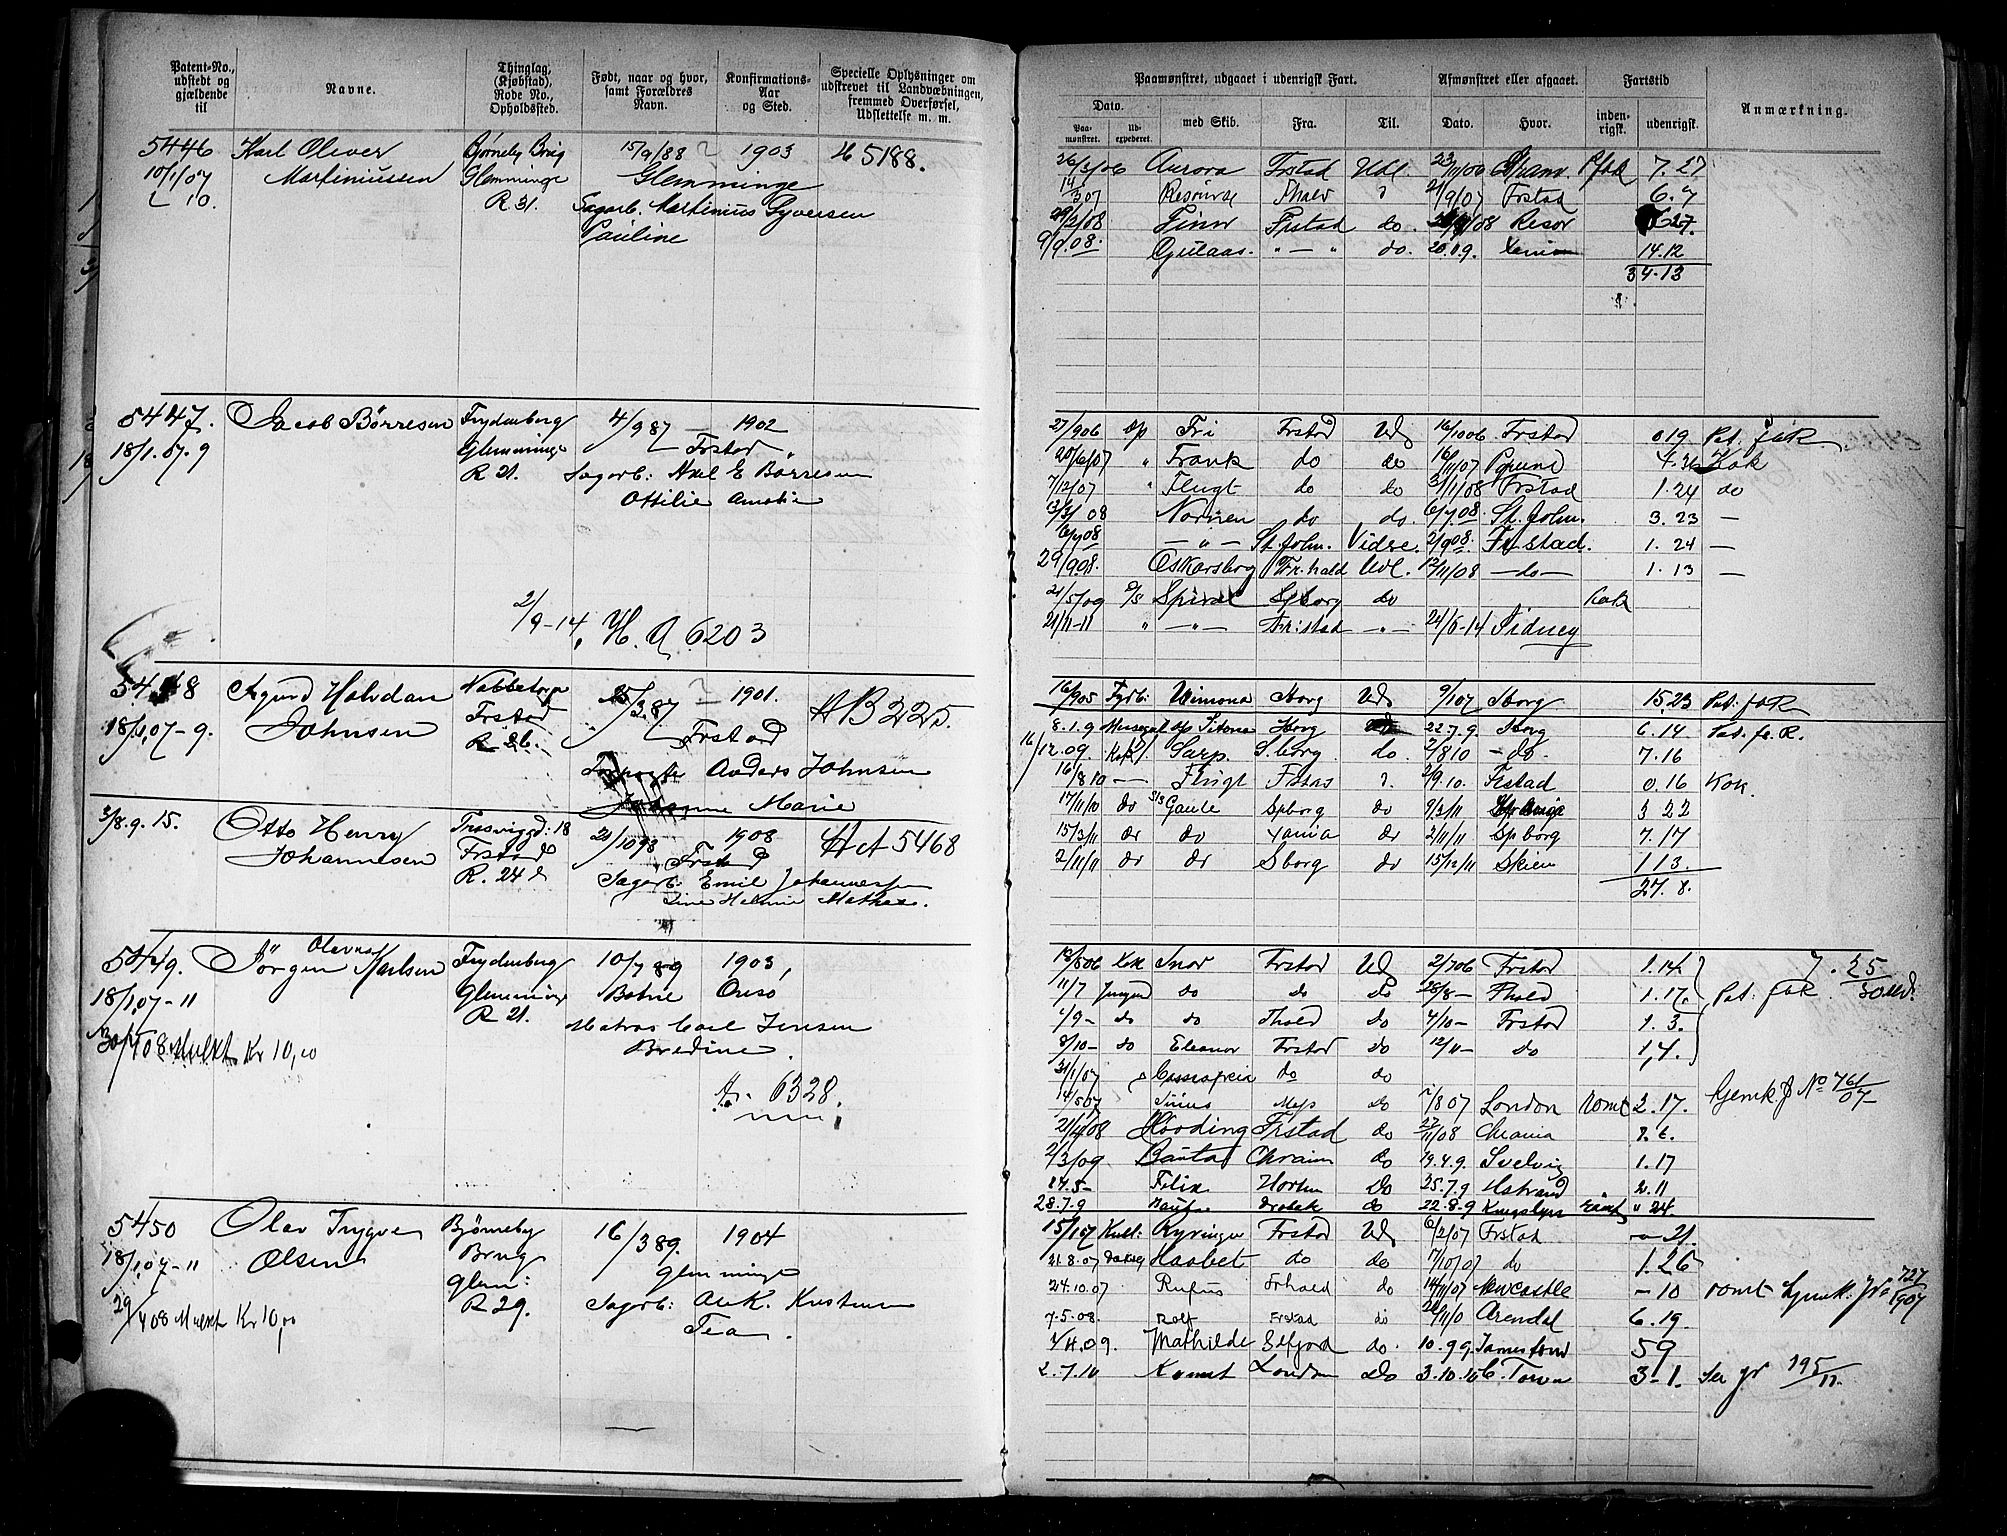 Patent-No.,
udstedt og
gjældende
til
Navne.
Thinglag,
(Kjøbstad),
Rode No.,
Opholdssted.
Født, naar og hvor,
samt Forældres
Navn.
Konfirmations-
Aar
og Sted.
Specielle Oplysninger om
udskrevet til Landværningen,
fremmed Overførsel,
Udslettelse m. m.
5446
10/1/07
10.
Karl Oliver
Martiniussen
Bjørneby Brug
Glemminge
R 31.
15/9/88
1903
Glemminge
Sagarb. Martinius Syversen
Pauline
5188.
5447.
18/1.07.9
Jacob Børresen
Frydenberg
Glemminge
R 21.
4/9 87 — 1902
Frstad
Sagarb: Axel E Børresen
Ottilie Amalie
2/9-14, H. A 6203
5448
18/1,07-9.
Sigurd Halvdan
Johnsen
Nabbetorp
Frstad
R 26.
25/3 87 — 1901.
Frstad
Anders Johnsen
Marie
HB 225.
3/8.9.15.
Otto Henry
Johannesen
Trosviggd: 18
Frstad
R. 24
21/10 93
1908
Frstad
Sagarb: Emil Johannessen
Mathea.
HA 5468
5449.
18/1,07-11
Olavus
Jörgen Karlsen
Frydenberg
Glemminge
R 21.
10/7 89
1903,
Onsø
Matros Carl Jensen
Bredine.
30/4 08 Mulkt Kr 10,00
6328.
5450
18/1,07-11
Olav Trygve
Olsen
Bjørneby
Brug
Glem:
R 29.
16/3 89.
1904
Glemminge
Sagarb: Kristensen
Tea.
29/4 08 Mulkt Kr 10,00
Paamønstret, udgaaet i udenrigsk Fart.
Afmønstret eller afgaaet.
Fartstid
Anmærkning.
Dato.
Paa-
mønstret.
Ud-
expederet.
med Skib.
Fra.
Til.
Dato.
Hvor.
inden-
rigsk.
udenrigsk.
26/3/06 Aurora Frstad Udl. 7.27
14/3 07 Fhald 21/9/07 Frstad 6.7
29/2/08 Finn Frstad do. Risør 27.
9/9.08. Gulaas. " — " do. 20.1.9. Xania 14.12
34.13
27/9 06 Fri Frstad Udl 16/10 06 Frstad 0 19 Pat. fak
20/6/07 " Frank do do 16/11/07 4. Kok
7/12/07 " Flugt do do 3/1/08 Frstad 1.24 do
13/3/08 Nornen do do. 6/7.08. St. John. 3.23 —
6/7 08 — " — St. John. Vidre. 2/9 08. Frstad. 1.24 —
29/9.08. Oskarsborg Fr.hald Udl. 12/11/08 — do — 1.13 —
21/5/09 D/S Spiral Spborg do Kok
21/11-11 " — " — Fr:stad — " — 24/6-14 Sidney
16/9 05 Fyrb: Wimona Sborg Udl 9/1 07 Sborg 15,23 Pat. fak
8.1.9 22.7.9 Sborg 6.14 Pat. f. R.
16/12.09. Sarp. S.borg do. 2/8 10 — do — 7.16
16/8 10 — Flugt Frstad 2/9.10. Frstad 0.16 Kok.
17/11/10 do S/S Gaute Spborg do 9/3/11 3 22
15/3/11 do do Xania do 2/11/11 Spborg 7.17
2/11/11 do do Sborg do 15/12/11 Skien 1 13.
27. 8.
12/5 06 Kok Snar Frstad Udl 2/7 06 Frstad 1.14.
11/7 Jungmd do do do 25/8 — Fhald 1.17. Pat. fak
7. 25
4/9 — do do Fhald do 4/10 — Frstad 1. 3.
8/10 — do Eleanor Frstad do 12/11 — do 1,4.
31/1/07 Cassiopeia do do
14/5 07 Sirius Moss do 1/8 07 London rømt 2.17. Gjenk. J No 761/07
21/4/08 Høvding Frstad do 27/11/08 Chrania 7.6.
2/3/09 Bauta Chrania do 19.4.9. Svelvig 1.17
24.5 — Felix Horten do 25.7.9 Hstrand 2.11
28.7.9 Bauta Drøbak do 22.8.9 Kingslynn rømt " 24
15/1 07 Kull: Kyvingen Frstad Udl 6/2/07 Frstad — 21.
21.8.07 Dæksg Haabet do do 17/10/07 do 1.26
24.10.07 Rufus Frhald do 14/11/07 Newcastle — 10 rømt Gjenk. J No 727/1907
7.5.08. Rolf Frstad do Arendal 6.19.
1/4.09. Mathilde do 10.9 9 Jamestown 5 9
2.7.10 Komet London do 3.10.10 3-1. Se jr 195/11.